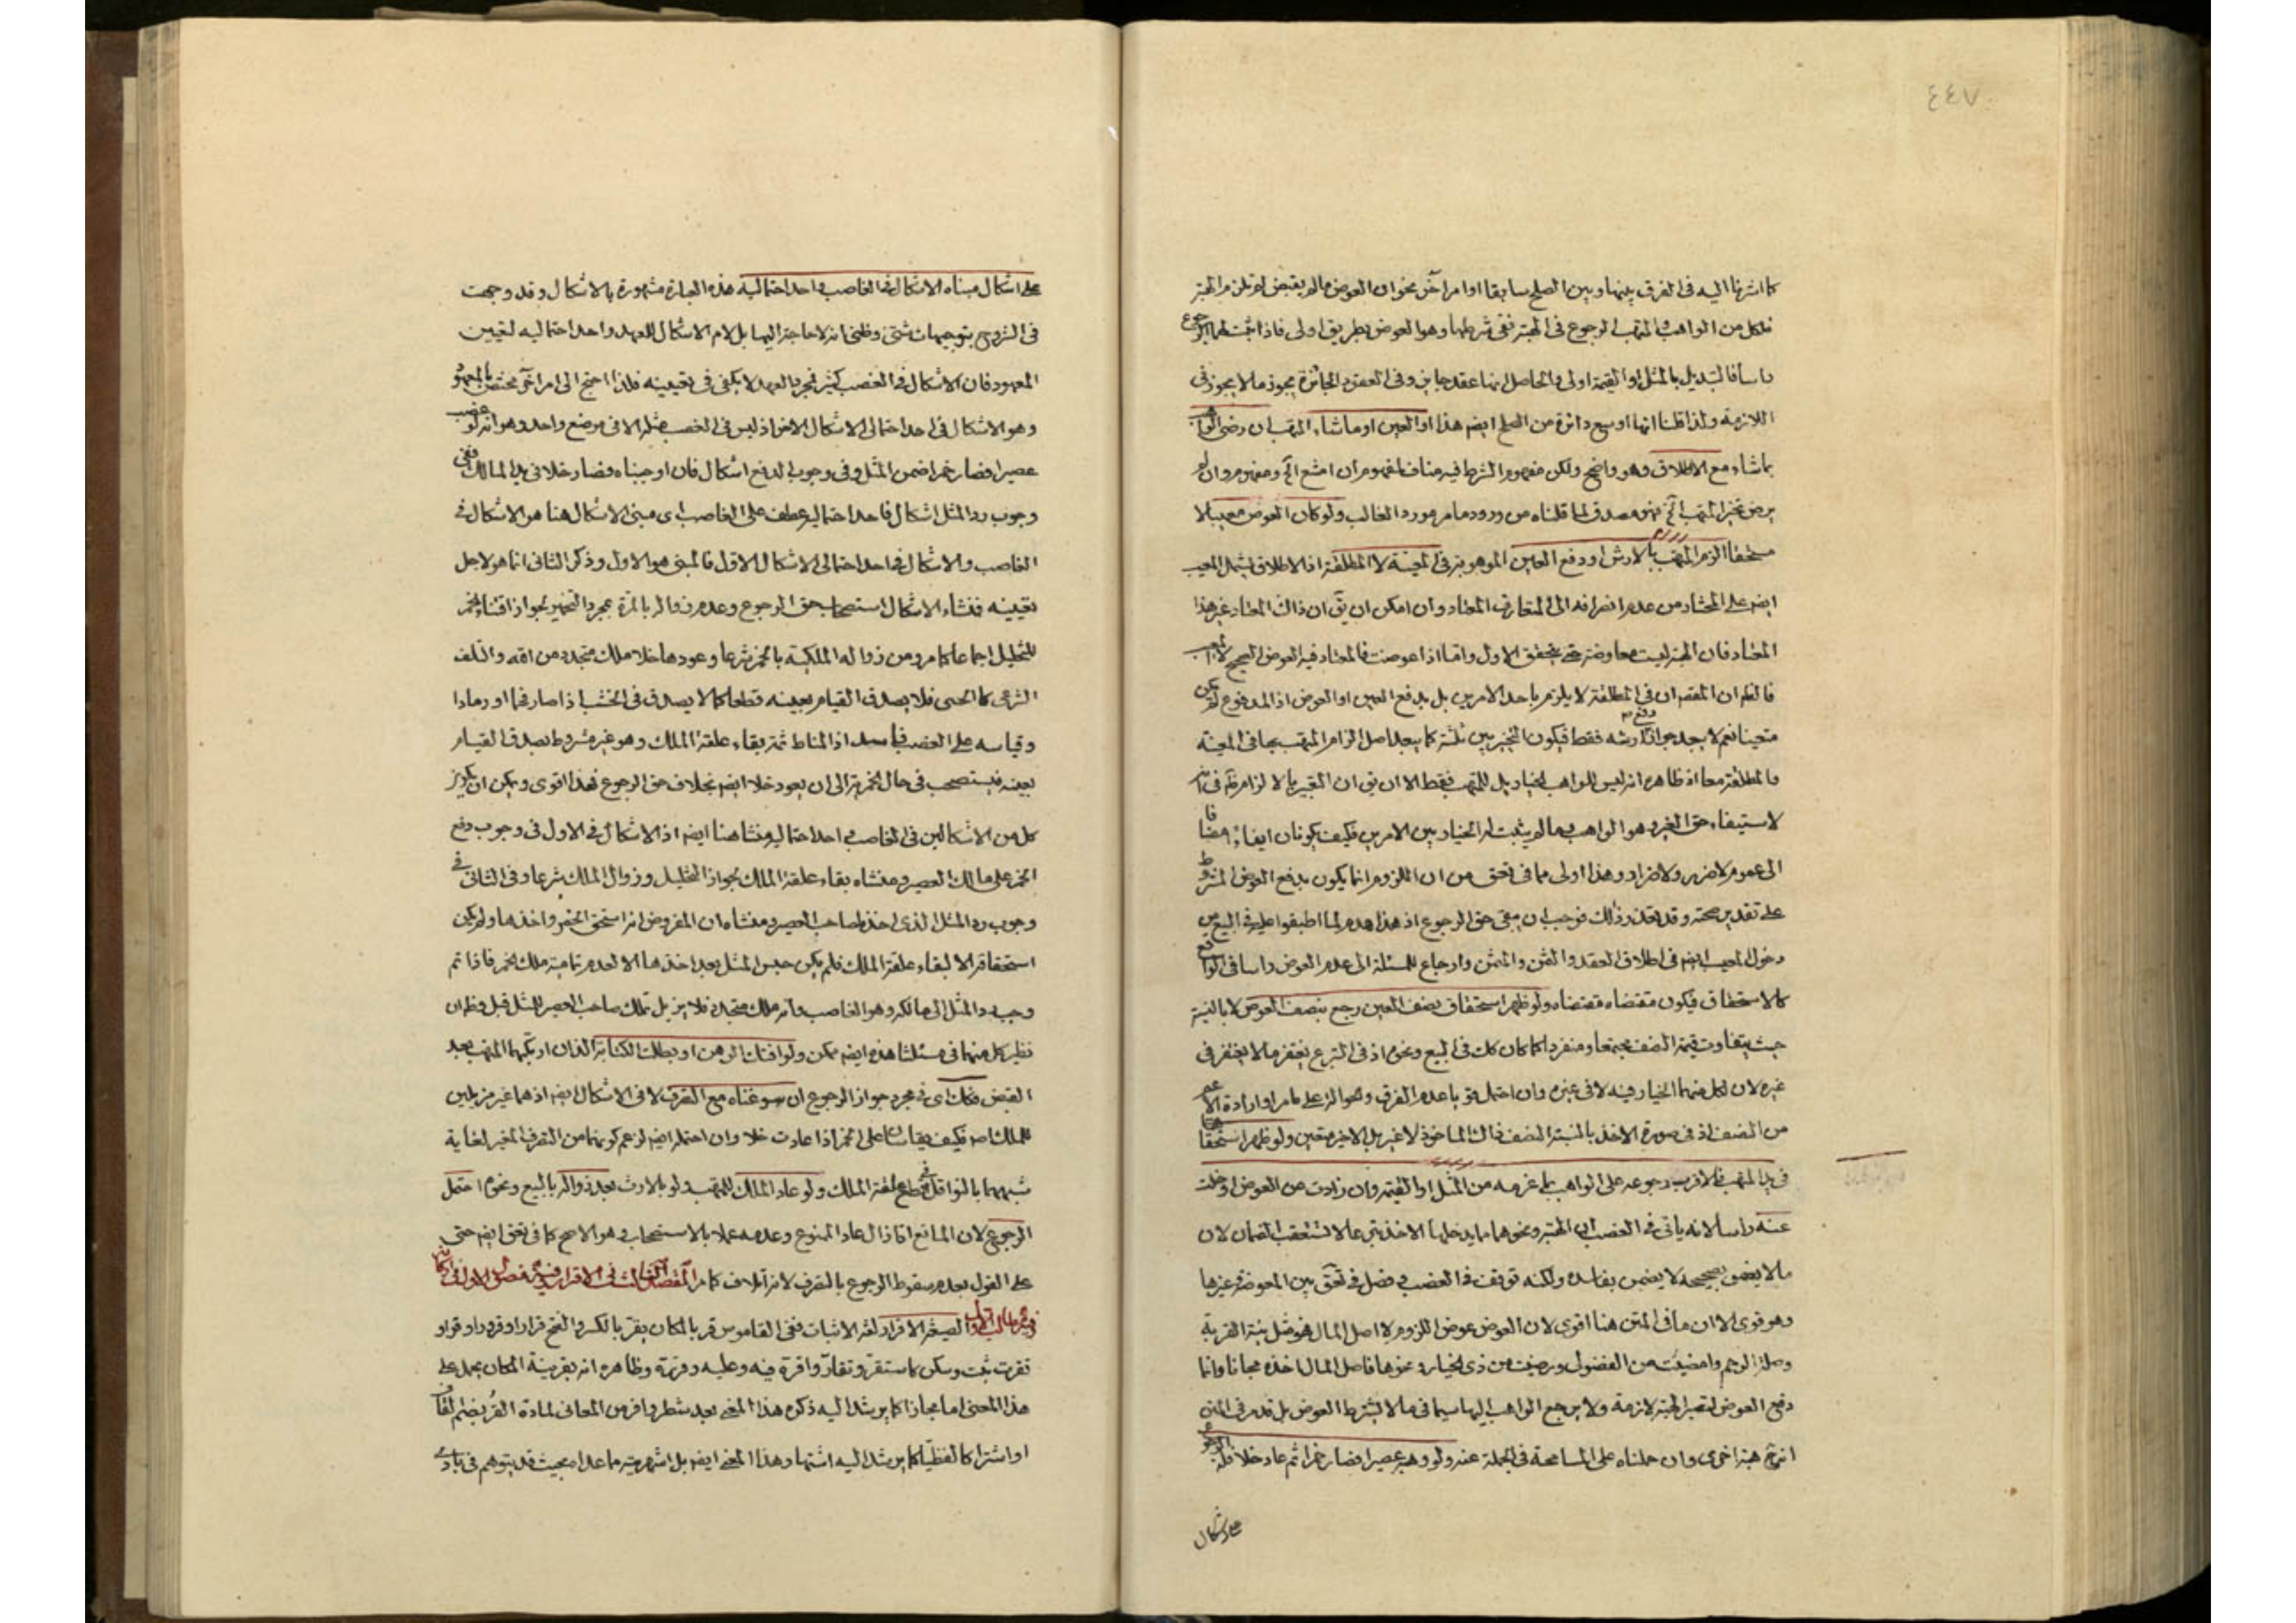 ٤٤٧
كما اشرنا اليه فى الفرق بينها وبين الصلح سابقا او امر آخر نحو ان العوض ما لم يقبض لم تلزم الهبة
فلكل من الواهب والمتهب الرجوع فى الهبة ففى شرطها وهو العوض بطريق اولى فاذا ثبت لهما الرجوع
راسا فالتبديل بالمثل او القيمة اولى والحاصل انها عقد جايز وفى العقود الجائزة يجوز ما لا يجوز فى
اللازمة ولذا قلنا انها اوسع دائرة من الصلح ايضم هذا او العين او ما شاء المتهب ان رضى الواهب
بما شاء مع الاطلاق وهو واضح ولكن مفهوم الشرط فيه مناف لمفهوم ان امتنع الخ ومفهوم وان لم
يرض تخير المتهب الخ فهو مصدق لما قلناه من وروده مورد الغالب ولو كان العوض معيبا لا
مستحقا الزم المتهب بالارش او دفع العين الموهوبة فى المعينة لا المطلقة اذ الاطلاق يشمل المعيب
ايضم على المختار من عدم انصرافه الى المتعارف المعتاد وان امكن ان يق ان ذاك المعتاد غير هذا
المعتاد فان الهبة ليست معاوضة حتى يتحقق الاول واما اذا عوضت فالمعتاد فيه العوض الصحيح لا المعيب
فالظم ان المقصم ان فى المطلقة لا يلزم باحد الامرين بل بدفع العين او العوض اذ المدفوع لم يكن
متعينا نعم لا يبعد جواز دفع ارشه فقط فيكون التخيير بين ثلثة كما يبعد اصل الزام المتهب بها فى المعينة
والمطلقة معا اذ ظاهره انه ليس للواهب الخيار بل للمتهب فقط الا ان يق ان التعبير بالالزام
لاستيفاء حق الغير وهو الواهب وما لم يثبت له الخيار بين الامرين فكيف يكونان ايفاء مضافا
الى عموم لا ضرر ولا ضرار وهذا اولى مما فى تحق من ان اللزوم انما يكون بدفع العوض المشروط
على تقدير صحته وقد تعذر ذلك فوجب ان يبقى حق الرجوع اذ هذا هدم لما اطبقوا عليه فى البيع من
دخول المعيب ايضم فى اطلاق العقد والثمن والمثمن وارجاع للمسئلة الى عدم العوض راسا فى الواقع
كالاستحقاق فيكون مقتضاه مقتضاه ولو ظهر استحقاق نصف العين رجع بنصف العوض لا بالنسبة
حيث يتفاوت قيمة النصف مجتمعا ومنفردا كما كان كك فى البيع ونحوه اذ فى التبرع يغتفر ما لا يغتفر فى
غيره لان لكل منهما الخيار فيه لا فى غيره وان احتمل قويا عدم الفرق وحوالته على ما مر او ارادة الاعم
من النصف اذ فى صورة الاخذ بالنسبة النصف ذاك الماخوذ لا غير بل الاخير متعين ولو ظهر استحقاقها
فى يد المتهب فالاقرب رجوعه على الواهب بما غرمه من المثل او القيمة وان زادت عن العوض او خلت
عنه راسا لانه ياتى فى الغصب ان الهبة ونحوها مما يد خليها الاخذ تبرعا لا تستعقب الضمان لان
ما لا يضمن بصحيحه لا يضمن بفاسده ولكنه توقف فى الغصب وفصل فى تحق بين المعوضة وغيرها
وهو قوى الا ان ما فى المتن هنا اقوى لان العوض عوض اللزوم لا اصل المال فهو مثل نية القربة
وصلة الرحم وامضيت من الفضولى ورضيت من ذى الخيار ونحوها فاصل المال اخذه مجانا وانما
دفع العوض لتصير الهبة لازمة ولا يرجع الواهب اليها سيما فى ما لا يشترط العوض بل قد مر فى المتن
انه هبة اخرى وان حملناه على المسامحة فى الجملة عنه ولو وهبه عصيرا فصار خمرا ثم عاد خلا فله الرجوع
على اشكال
على اشكال مبناه الاشكال فى الغاصب واحد احتماليه هذه العبارة مشهورة بالاشكال وقد وجهت
فى الشروح بتوجيهات شتى وظنى انه لا حاجة اليها بل لام الاشكال للعهد واحد احتماليه لتعيين
المعهود فان الاشكال فى الغصب كثير فمجرد العهد لا يكفى فى تعيينه فلذا احتيج الى امر آخر مختص بالمعهود
وهو الاشكال فى احد احتمالى الاشكال الاخر اذ ليس فى الغصب مثله الا فى موضع واحد وهو انه لو غصب
عصيرا فصار خمرا ضمن المثل وفى وجوب الدفع اشكال فان اوجبناه فصار خلا فى يد المالك ففى
وجوب رد المثل اشكال فاحد احتماليه عطف على الغاصب اى مبنى الاشكال هنا من الاشكال فى
الغاصب والاشكال فى احد احتمالى الاشكال الاول فالمبنى هو الاول وذكر الثانى انما هو لاجل
تعيينه فمنشاء الاشكال استصحاب حق الرجوع وعدم زواله بالمرة بمجرد التخمير لجواز اقتناء الخمر
للتخليل اجماعا كما مر ومن زواله الملكية بالخمر شرعا وعودها خلا ملك متجدد من الله والتلف
الشرعى كالحسى فلا يصدق القيام بعينه قطعا كما لا يصدق فى الخشب اذا صار فحما او رمادا
وقياسه على الغصب فاسد اذ المناط ثمة بقاء علقة الملك وهو غير مشروط بصدق القيام
بعينه فيستصحب فى حال الخمرية الى ان يعود خلا ايضم بخلاف حق الرجوع فهذا اقوى ويمكن ان يكون
كل من الاشكالين فى الغاصب واحد احتماليه منشا هنا ايضم اذ الاشكال فى الاول فى وجوب دفع
الخمر على مالك العصير ومنشاه بقاء علقة الملك لجواز التخليل وزوال الملك شرعا وفى الثانى فى
وجوب رد المثل الذى اخذه صاحب العصير ومنشاه ان المفروض انه استحق الخمر واخذها ولم يكن
استحقاقه الا لبقاء علقة الملك فلم يكن حبس المثل بعد اخذها الا لعدم تمامية ملك الخمر فاذا تم
وجب رد المثل الى مالكه وهو الغاصب وانه ملك متجدد فلا يزيل تملك صاحب العصير للمثل قبل وظ ان
نظير كل منهما فى مسئلتنا هذه ايضم ممكن ولو افتك الرهن او بطلت الكتابة اللذان ارتكبهما المتهب بعد
القبض فكك اى فى مجرد جواز الرجوع ان سوغناه مع التصرف لا فى الاشكال ايضم اذ هما غير مزيلين
للملك اصم فكيف يقاسان على الخمر اذا عادت خلا وان احتمله ايضم لزعم كونهما من التصرف المغير لغاية
شبههما بالنواقل فى قطع علقة الملك ولو عاد الملك للمتهب ولو بالارث بعد زواله بالبيع ونحوه احتمل
الرجوع لان المانع اذا زال عاد الممنوع وعدمه عملا بالاستصحاب وهو الاصح كما فى تحق ايضم حتى
على القول بعدم سقوط الرجوع بالتصرف لانه اتلاف كما مر المقصد الثالث فى الاقرار وفيه فصول الاول فى اركانه
وفيه مطالب الاول الصيغة الاقرار لغة الاثبات ففى القاموس قر بالمكان يقر بالكسر والفتح قرارا وقرورا وقرا و
تقرت ثبت وسكن كاستقر وتقار واقره فيه وعليه وقرره وظاهره انه بقرينة المكان يحمل على
هذا المعنى اما مجازا كما يرشد اليه ذكره هذا المعنى بعد شطر وافر من المعانى لمادة القر بضم القاف
او اشتراكا لفظيا كما يرشد اليه اشتهار هذا المعنى ايضم بل اشهريته مما عداه بحيث قد يتوهم فى بادى